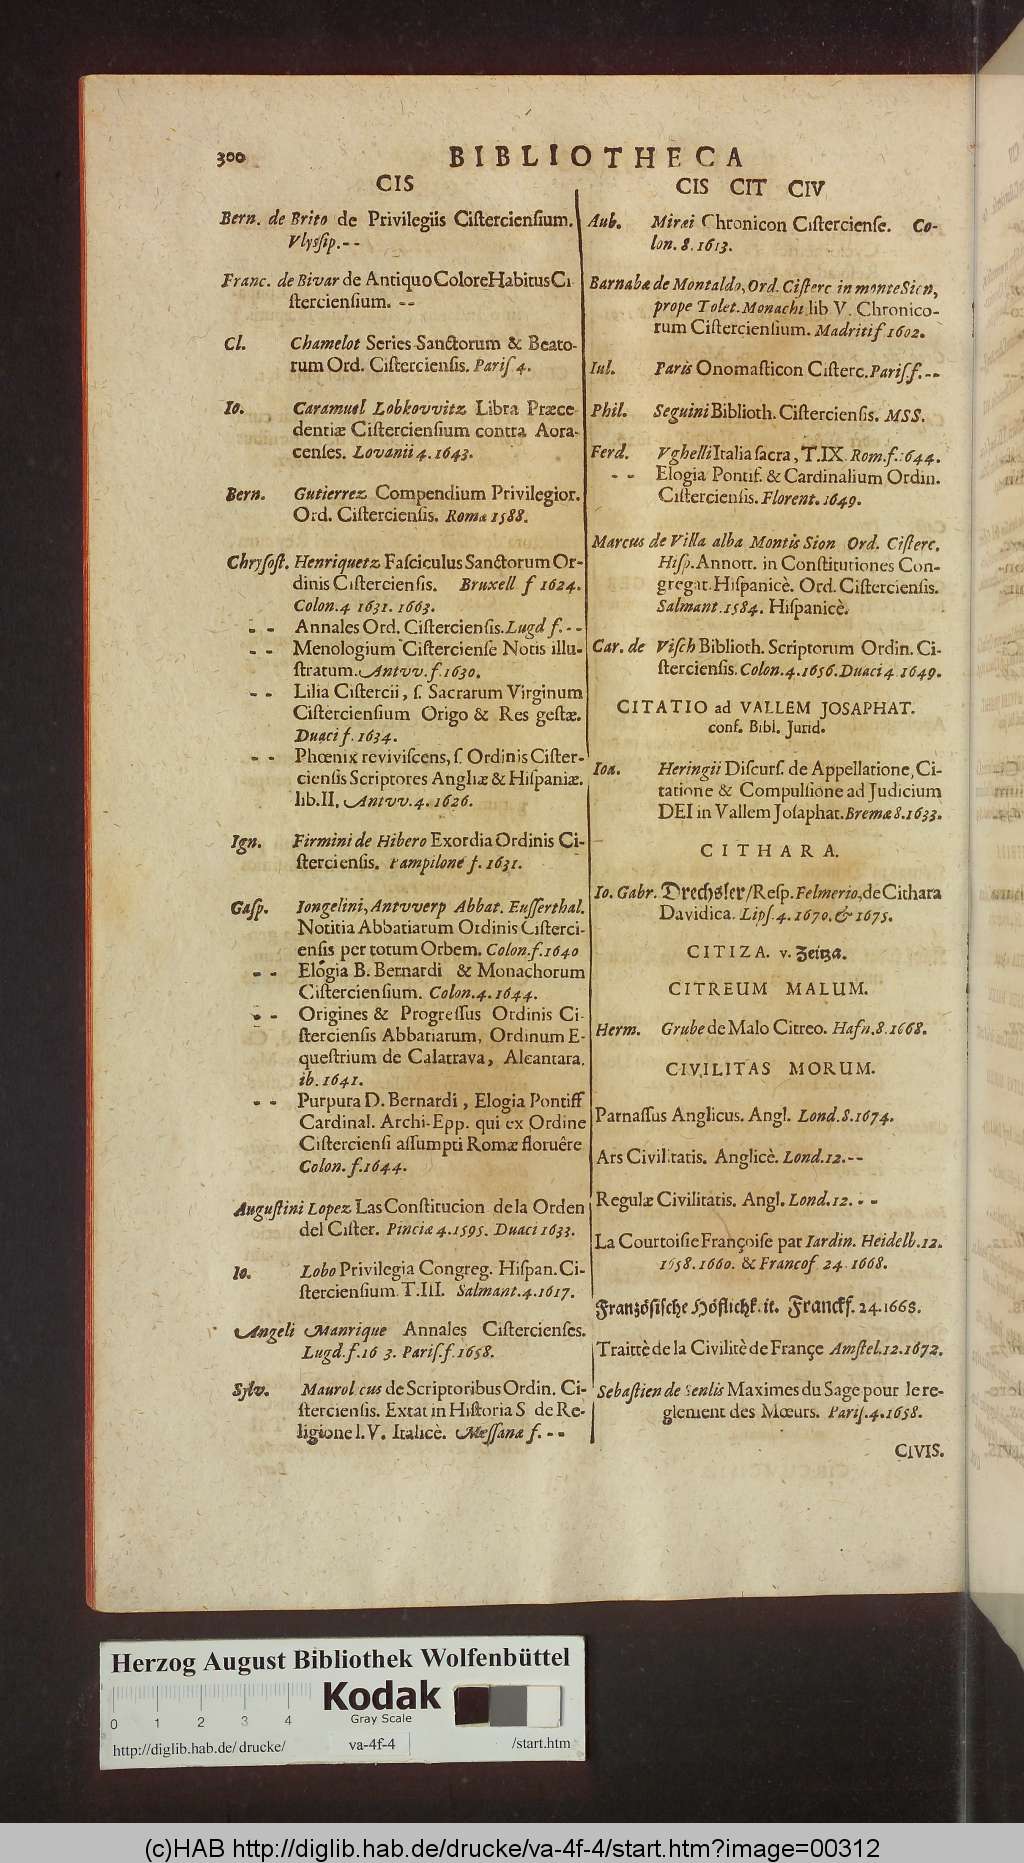 300
BIBLIOTHECA
CIS
Bern. de Brito de Privilegiis Cisterciensium.
Vlyssip.--
Franc. de Bivar de Antiquo Colore Habitus Ci
sterciensium. --
Cl. Chamelot Series Sanctorum & Beato-
rum Ord. Cisterciensis. Paris 4.
Io. Caramuel Lobkovvitz Libra Præce-
dentiæ Cisterciensium contra Aora-
censes. Lovanii 4. 1643.
Bern. Gutierrez Compendium Privilegior.
Ord. Cisterciensis. Romæ 1588.
Chrysost. Henriquetz Fasciculus Sanctorum Or-
dinis Cisterciensis. Bruxell f 1624.
Colon.4 1631. 1663.
- - Annales Ord. Cisterciensis. Lugd f.--
- - Menologium Cisterciense Notis illu-
stratum. Antvv. f. 1630.
- - Lilia Cistercii, s. Sacrarum Virginum
Cisterciensium Origo & Res gestæ.
Duaci f. 1634.
- - Phœnix reviviscens, s. Ordinis Cister-
ciensis Scriptores Angliæ & Hispaniæ.
lib. II. Antvv. 4. 1626.
Ign. Firmini de Hibero Exordia Ordinis Ci-
sterciensis. Pampilonę f. 1631.
Gasp. Iongelini, Antvverp Abbat. Eusserthal.
Notitia Abbatiarum Ordinis Cisterci-
ensis per totum Orbem. Colon. f. 1640
- - Elogia B. Bernardi & Monachorum
Cisterciensium. Colon. 4. 1644.
- - Origines & Progressus Ordinis Ci-
sterciensis Abbatiarum, Ordinum E-
questrium de Calatrava, Alcantara.
ib. 1641.
- - Purpura D. Bernardi, Elogia Pontiff
Cardinal. Archi-Epp. qui ex Ordine
Cisterciensi assumpti Romæ floruêre
Colon. f. 1644.
Augustini Lopez Las Constitucion de la Orden
del Cister. Pinciæ 4. 1595. Duaci 1633.
Io. Lobo Privilegia Congreg. Hispan. Ci-
sterciensium T. III. Salmant. 4. 1617.
Angeli Manrique Annales Cistercienses.
Lugd. f. 16 3. Paris. f. 1658.
Sylv. Maurol cus de Scriptoribus Ordin. Ci-
sterciensis. Extat in Historia S de Re-
ligione l. V. Italicè. Messanæ f. --
CIS CIT CIV
Aub. Miræi Chronicon Cisterciense. Co-
lon. 8. 1613.
Barnabæ de Montaldo, Ord. Cisterc in monte Sion,
prope Tolet. Monachi lib V. Chronico-
rum Cisterciensium. Madriti f 1602.
Iul. Paris Onomasticon Cisterc. Paris. f. --
Phil. Seguini Biblioth. Cisterciensis. MSS.
Ferd. Vghelli Italia sacra, T. IX. Rom. f. 1644.
- - Elogia Pontif. & Cardinalium Ordin.
Cisterciensis. Florent. 1649.
Marcus de Villa alba Montis Sion Ord. Cisterc.
Hisp. Annott. in Constitutiones Con-
gregat. Hispanicè. Ord. Cisterciensis.
Salmant. 1584. Hispanicè.
Car. de Visch Biblioth. Scriptorum Ordin. Ci-
sterciensis. Colon. 4. 1656. Duaci 4 1649.
CITATIO ad VALLEM JOSAPHAT.
conf. Bibl. Jurid.
Ioa. Heringii Discurs. de Appellatione, Ci-
tatione & Compulsione ad Judicium
DEI in Vallem Josaphat. Bremæ 8. 1633.
CITHARA.
Io. Gabr. Drechsler / Resp. Felmerio, de Cithara
Davidica. Lips. 4. 1670. & 1675.
CITIZA. v. Zeitza.
CITREUM MALUM.
Herm. Grube de Malo Citreo. Hafn. 8. 1668.
CIVILITAS MORUM.
Parnassus Anglicus. Angl. Lond. 8. 1674.
Ars Civilitatis. Anglicè. Lond. 12. --
Regulæ Civilitatis. Angl. Lond. 12. - -
La Courtoisie Françoise par Iardin. Heidelb. 12.
1658. 1660. & Francof 24 1668.
Französische Höflichk. it. Franckf. 24. 1668.
Traittè de la Civilitè de Françe Amstel. 12. 1672.
Sebastien de Senlis Maximes du Sage pour le re-
glement des Mœurs. Paris. 4. 1658.
CIVIS.
Herzog August Bibliothek Wolfenbüttel
Kodak
Gray Scale
0 1 2 3 4
http://diglib.hab.de/drucke/ va-4f-4 /start.htm
(c)HAB http://diglib.hab.de/drucke/va-4f-4/start.htm?image=00312